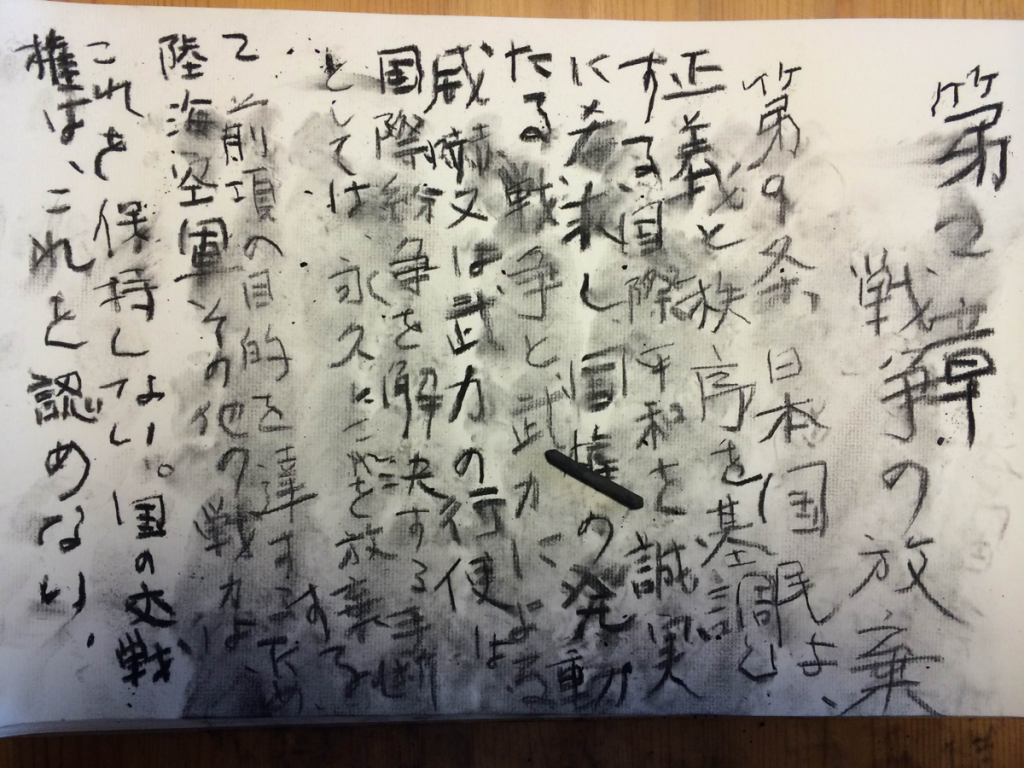 第2章
戦争の放棄
第9条、日本国民は、
正義と秩序を基調と
する国際平和を誠実
に希求し国権の発動
たる戦争と武力による
威嚇又は武力の行使は
国際紛争を解決する手断
としては永久にこれを放棄
する
2 前項の目的を達するため
陸海空軍その他の戦力は、
これを保持しない。国の交戦
権は、これを認めない.